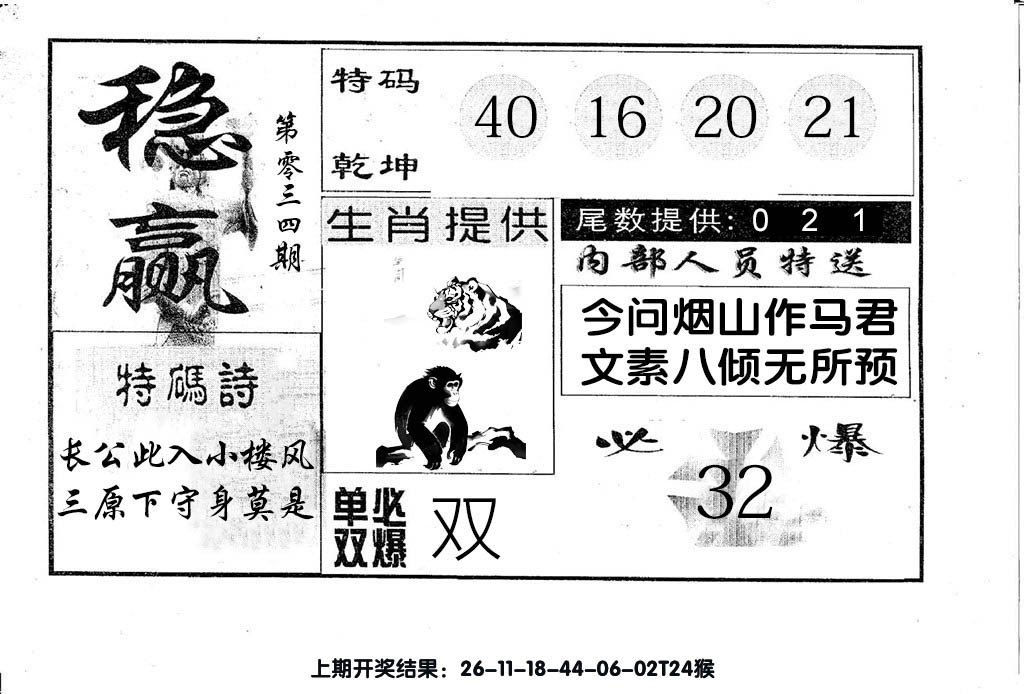 稳赢
第零三四期
特码诗
长公此入小楼风
三原下守身莫是
特码
乾坤
40 16 20 21
生肖提供
单双必爆
双
尾数提供: 0 2 1
内部人员特送
今问烟山作马君
文素八倾无所预
必爆
32
上期开奖结果：26-11-18-44-06-02T24猴